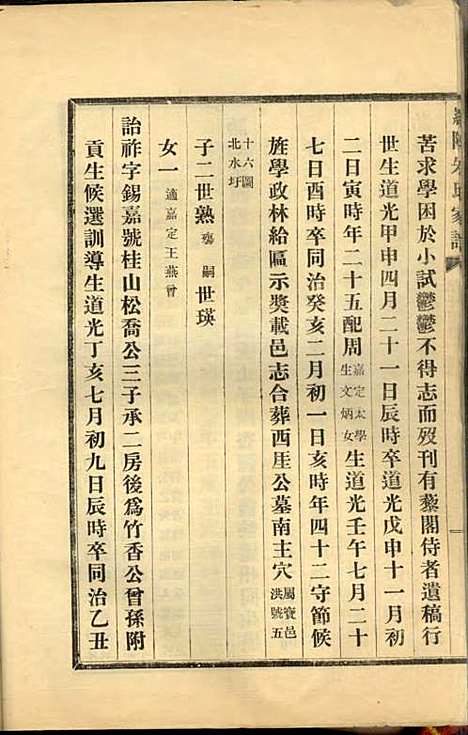 苦求學困於小試鬱鬱不得志而歿刊有藜閣侍者遺稿行
世生道光甲申四月二十一日辰時卒道光戊申十一月初
二日寅時年二十五配周嘉定太學生文炳女生道光壬午七月二十
七日酉時卒同治癸亥二月初一日亥時年四十二守節候
旌學政林給匾示獎載邑志合葬西厓公墓南主穴屬寶邑洪號五
十六圖北水圩
子二世熟殤嗣世瑛
女一適嘉定王燕曾
詒祚字錫嘉號桂山松喬公三子承二房後為竹香公曾孫附
貢生候選訓導生道光丁亥七月初九日辰時卒同治乙丑